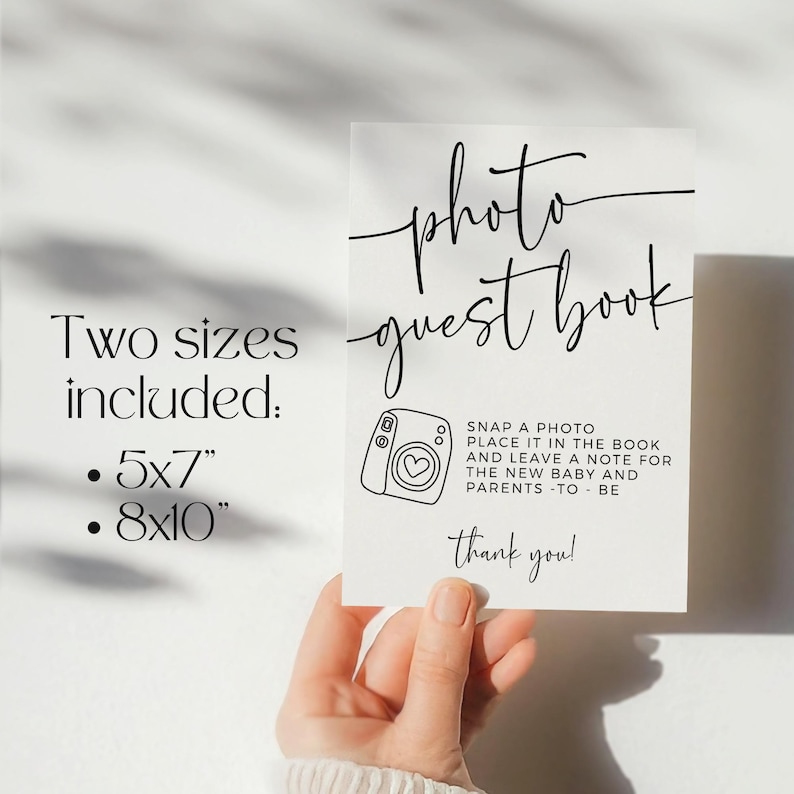 Two sizes
included:
• 5x7”
• 8x10”
photo
guest book
SNAP A PHOTO
PLACE IT IN THE BOOK
AND LEAVE A NOTE FOR
THE NEW BABY AND
PARENTS -TO - BE
thank you!